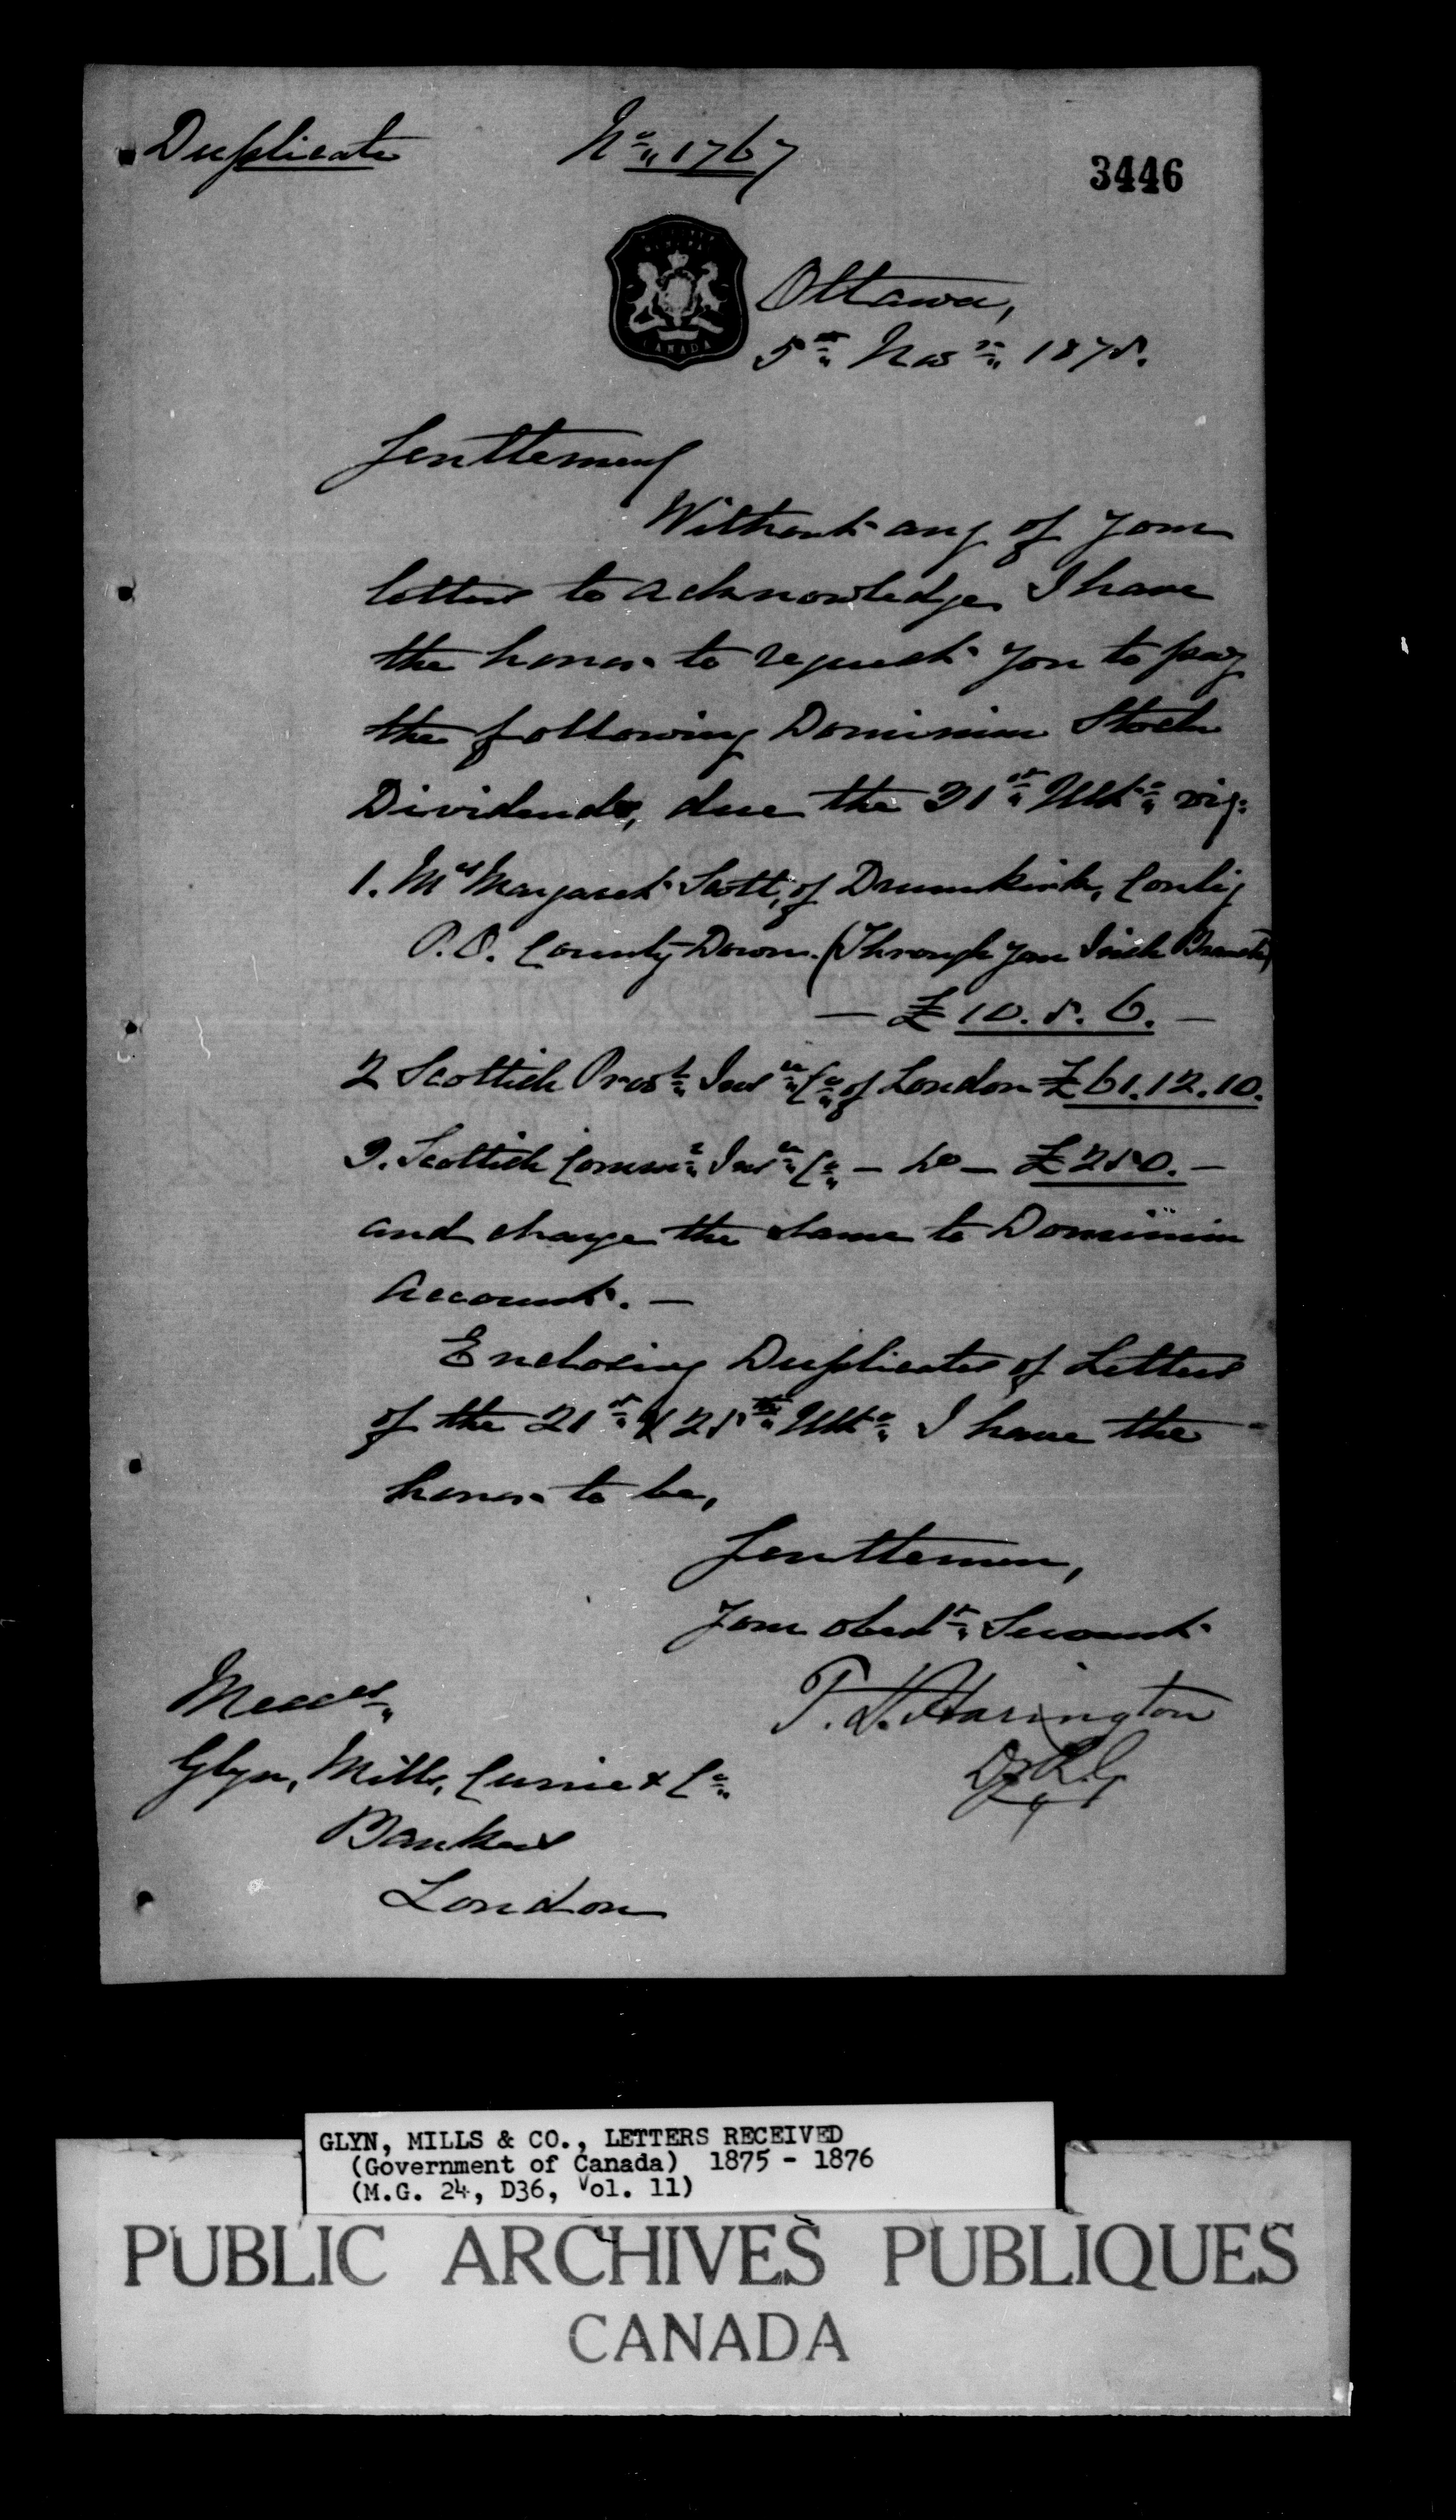 Duplicate
No 1767
3446
CANADA
Ottawa,
5th Novr 1875.
Gentlemen
Without any of your
letters to acknowledge I have
the honor to request you to pay
the following Dominion Stock
Dividends, due the 31st Ulto viz:
1. Mrs Margaret Scott, of Drumkirk, Conlig
P.O. County Down. (Through your Irish Branch)
— £10.5.6. —
2 Scottish Provl Insce Co of London £61.12.10.
3. Scottish Comml Insce Co — Do — £250. —
and charge the same to Dominion
Account. —
Enclosing Duplicates of Letters
of the 21st & 25th Ulto I have the
honor to be,
Gentlemen,
Your obedt Servant
T. D. Harington
D.R.G
Messrs
Glyn, Mills, Currie & Co
Bankers
London
GLYN, MILLS & CO., LETTERS RECEIVED
(Government of Canada) 1875 - 1876
(M.G. 24, D36, Vol. 11)
PUBLIC ARCHIVES PUBLIQUES
CANADA